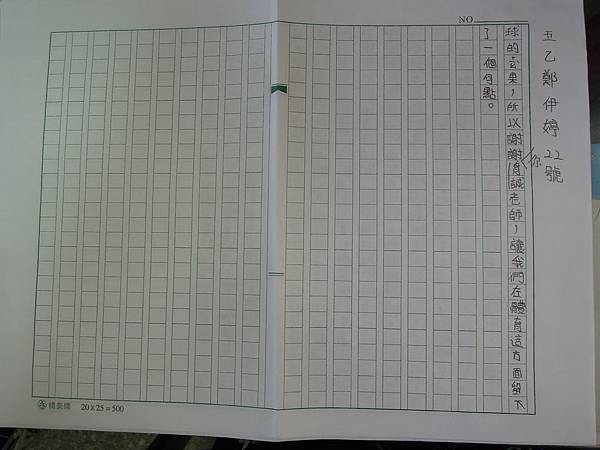 五乙鄭伊婷22號
NO
球的
果，所以謝謝你
誠老師，讓我們在體育這方面留下
了一個句點。
20 x 25 = 500